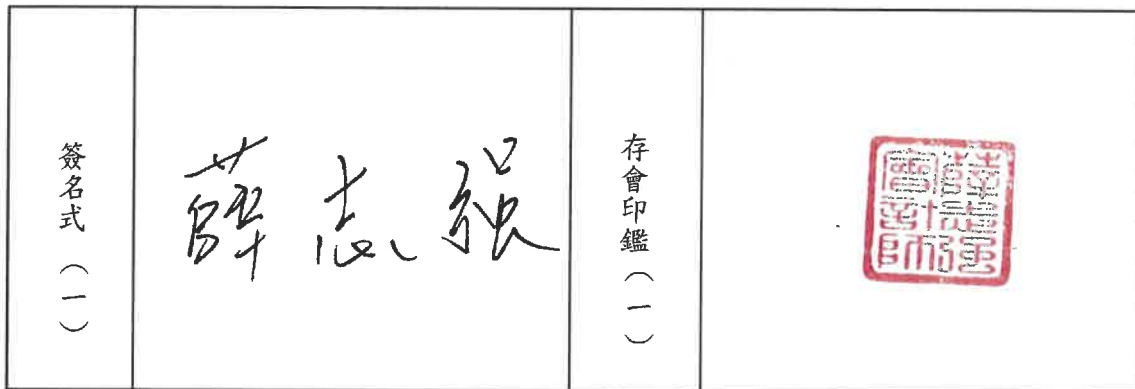 簽名式（一）
薛志強
存會印鑑（一）
薛志強
會計師